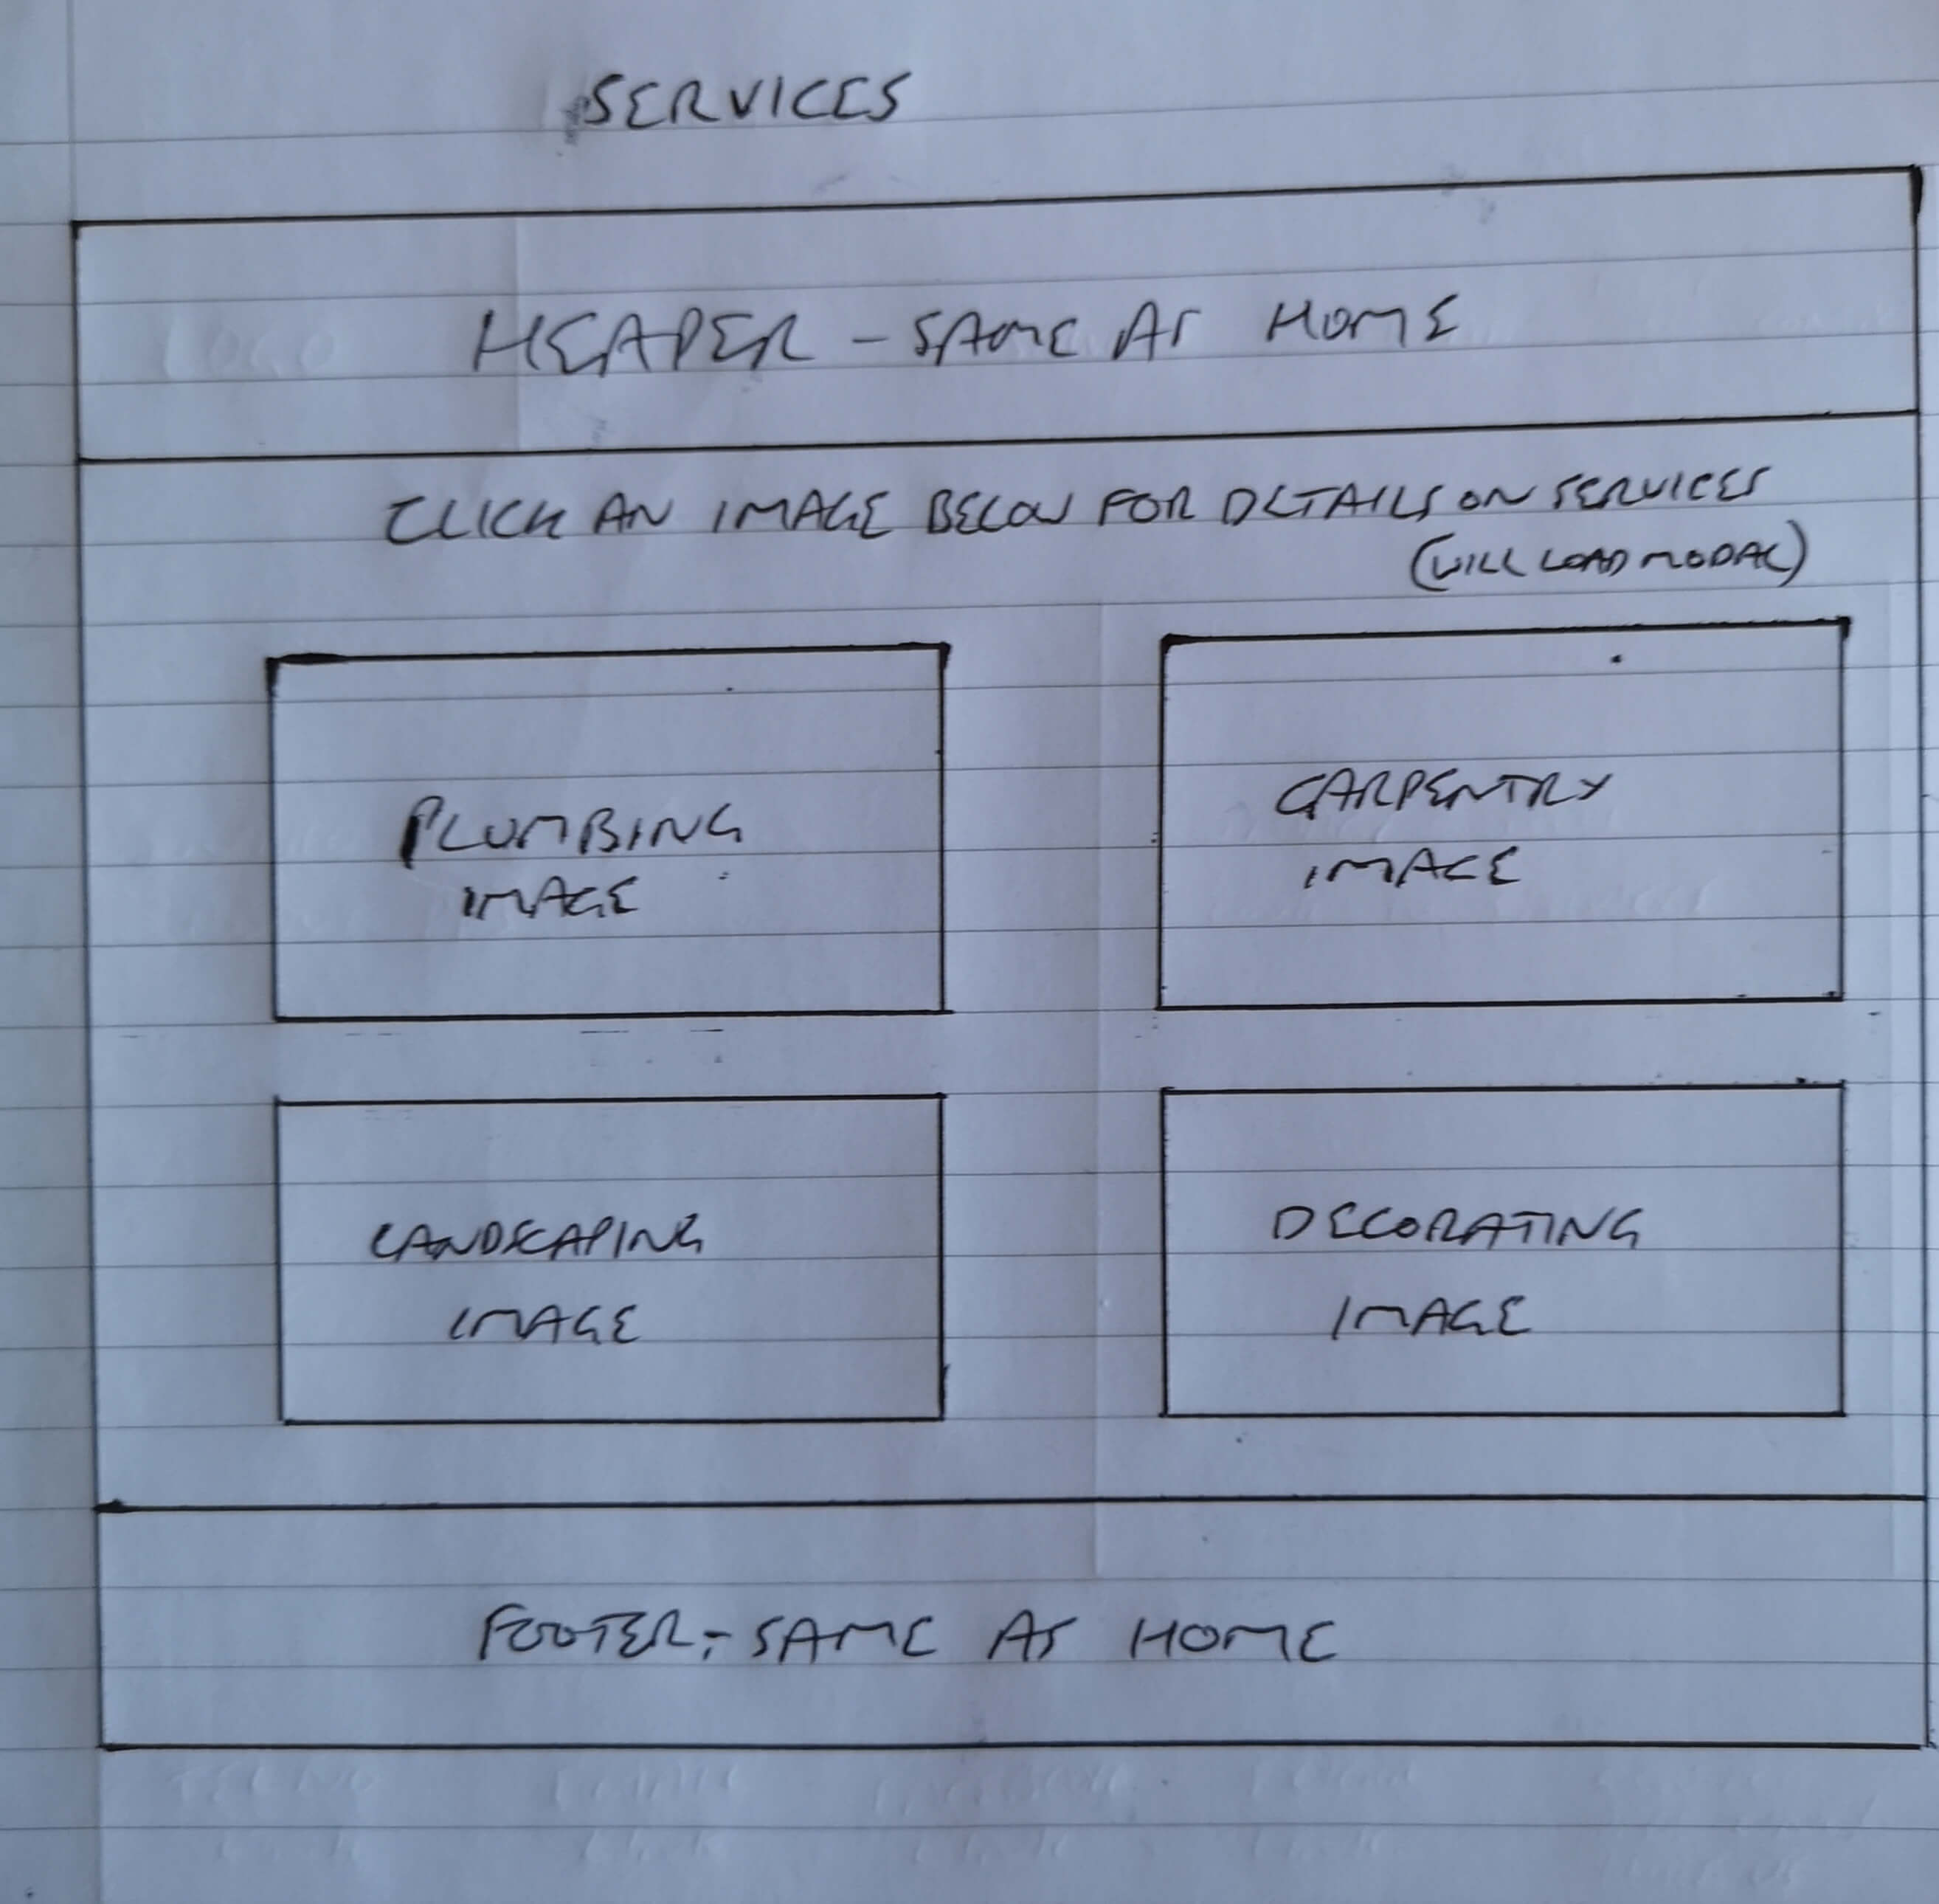 SERVICES
HEADER - SAME AS HOME
CLICK AN IMAGE BELOW FOR DETAILS ON SERVICES
(WILL LOAD MODAL)
PLUMBING
IMAGE
CARPENTRY
IMAGE
LANDSCAPING
IMAGE
DECORATING
IMAGE
FOOTER - SAME AS HOME